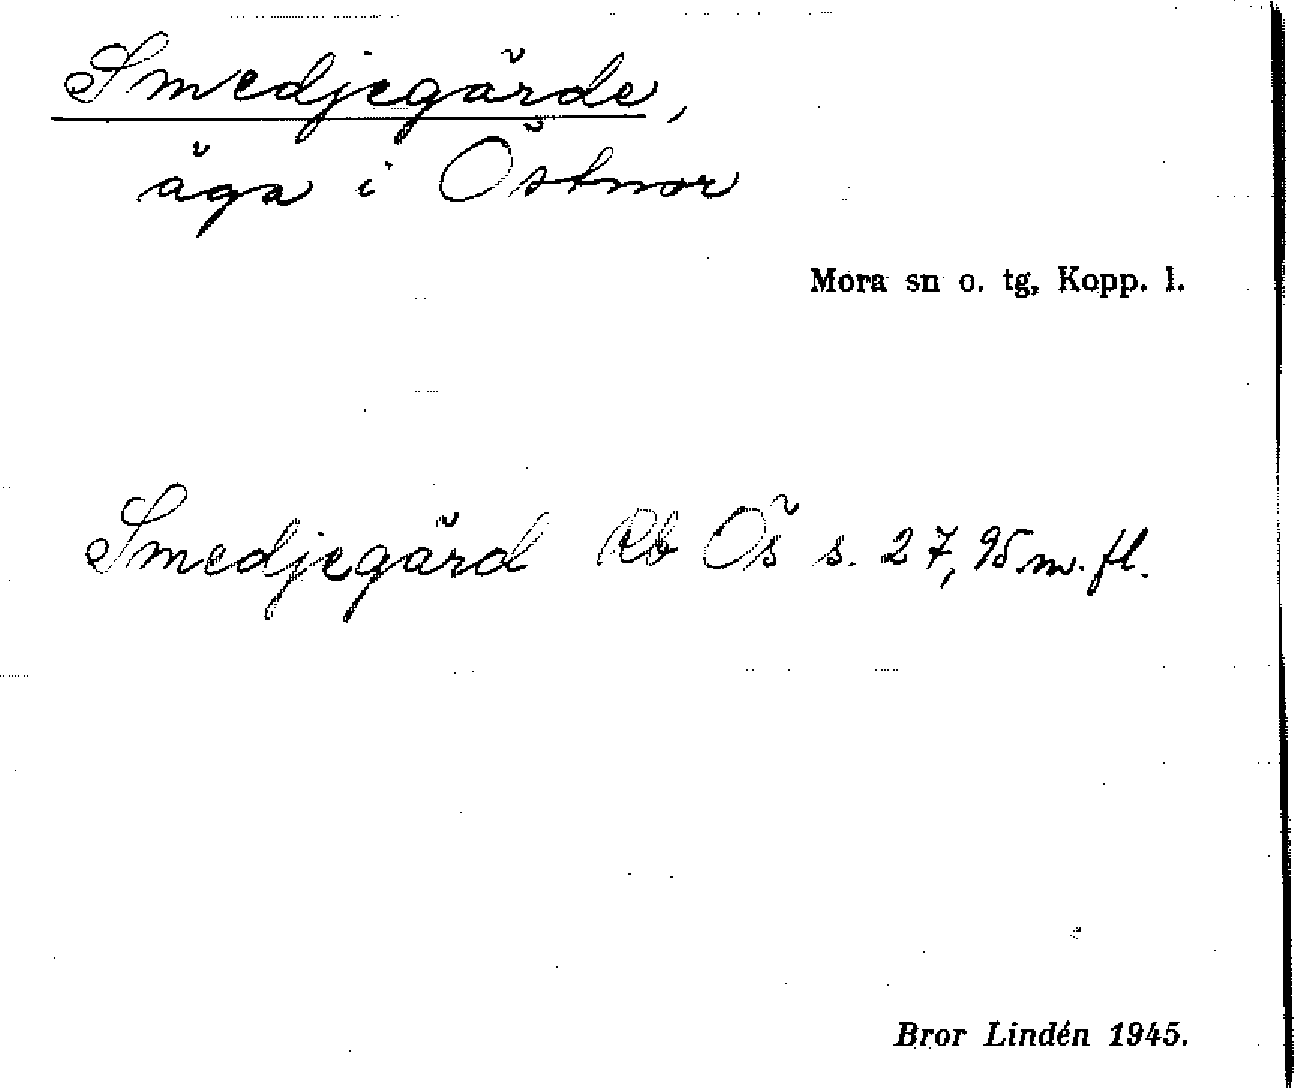 Smedjegärde,
äga i Östnor
Mora sn o. tg, Kopp. l.
Smedjegärd Rb Ös s. 27, 95 m. fl.
Bror Lindén 1945.